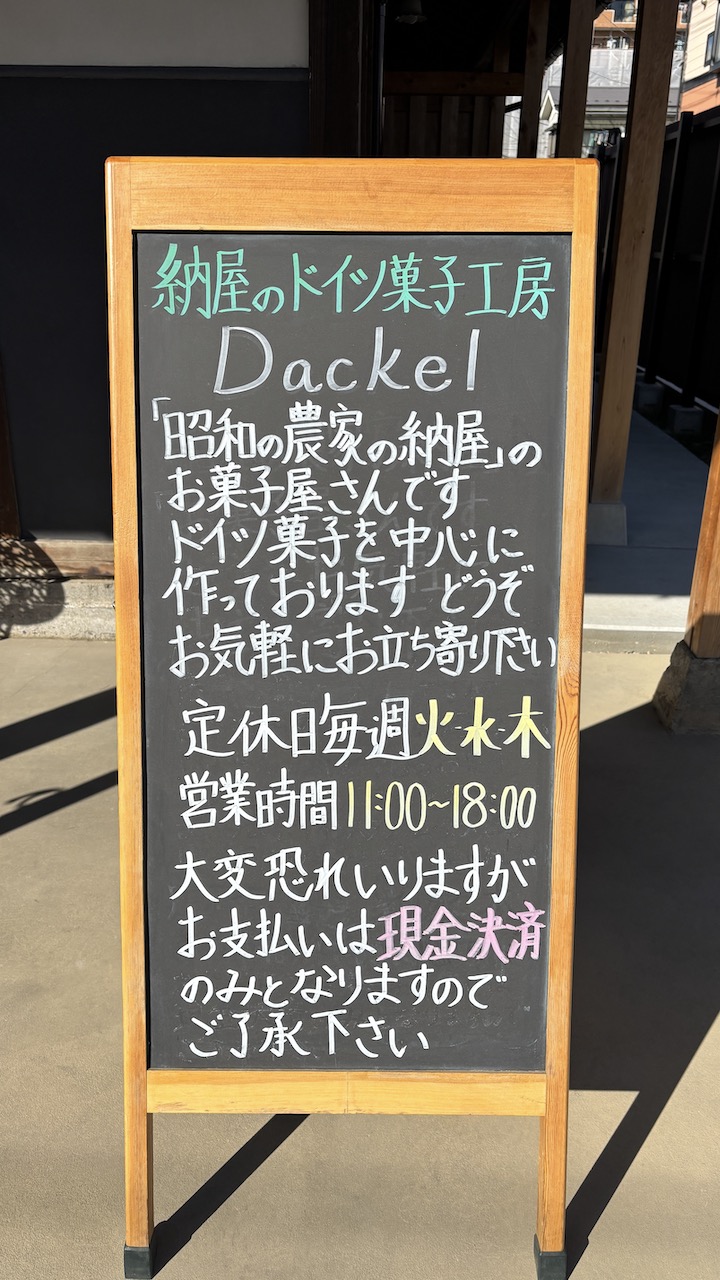 納屋のドイツ菓子工房
Dackel
「昭和の農家の納屋」の
お菓子屋さんです
ドイツ菓子を中心に
作っております どうぞ
お気軽にお立ち寄り下さい
定休日毎週火・水・木
営業時間11:00~18:00
大変恐れいりますが
お支払いは現金決済
のみとなりますので
ご了承下さい